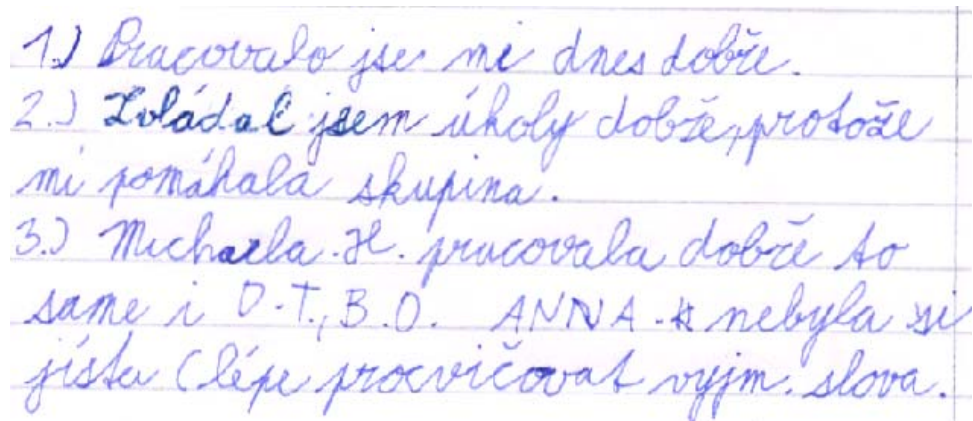 1.) Pracovalo jse mi dnes dobře.
2.) Zvládal jsem úkoly dobře, protože
mi pomáhala skupina.
3.) Michaela.H. pracovala dobře to
same i D.T., B.O. ANNA.K nebyla si
jísta (lépe procvičovat vyjm. slova.